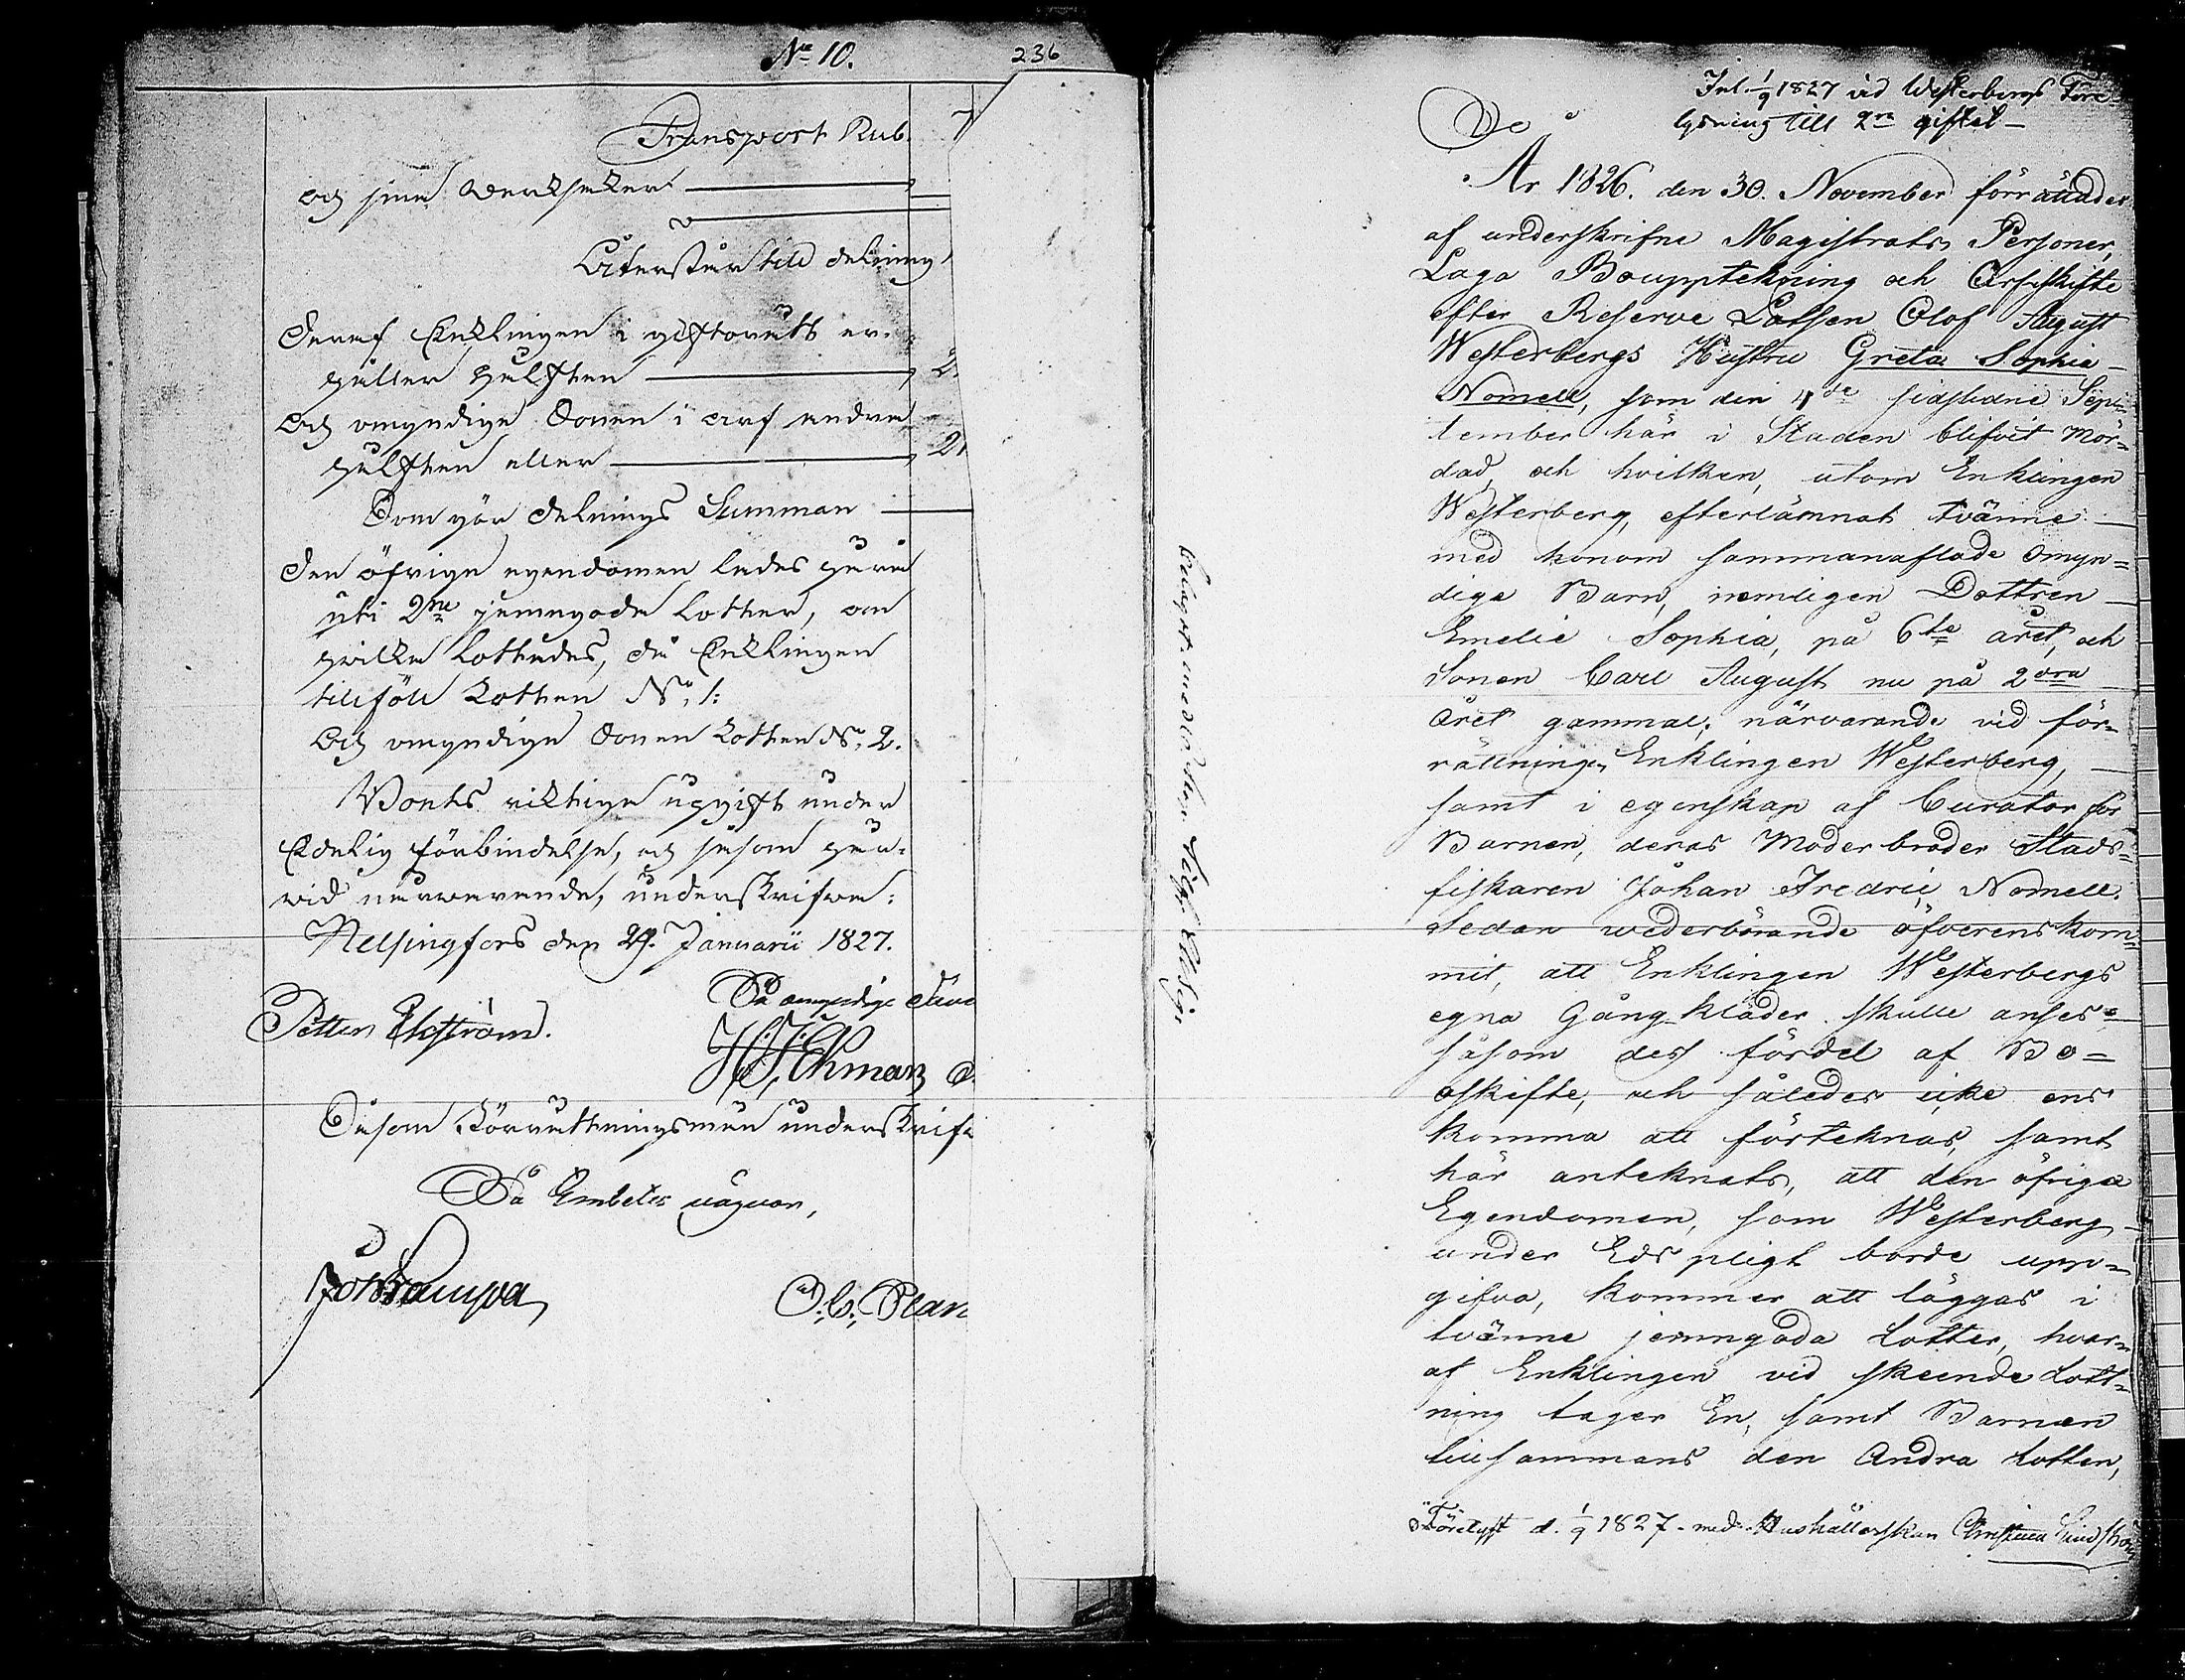 No 10.
236
Transport Rub.
och sina werktyker
Återstår till delning
deraf Enklingen i giftorätt er-
håller hälften
2
och omyndige Sonen i arf andra
hälften eller
2
Som gör delnings Summan
den öfriga egendomen lades härå
uti 2ne jemngoda Lotter, om
hvilka lottades, då Enklingen
tillföll Lotten No 1:
och omyndige Sonen Lotten No 2.
Wonts riktiga uppgift under
Edelig förbindelse, och såsom här-
wid närwarande, underskrifwa:
Helsingfors den 29. Januarii 1827.
På omyndige
Petter Ekström.
H. J. Ehman
Såsom Förrättningsmän underskrif
På Embetes vägnar,
Inl. 1/9 1827 vid Westerbergs Före-
lysning till 2re giftet
År 1826. den 30. November förrättades
af underskrifne Magistrats Personer,
Laga Bouppteckning och Arfskifte
efter Reserve Lotsen Olof August
Westerbergs Hustru Greta Sophia
Nomell, som den 4de sidstledne Sep-
tember här i Staden blifvit mör-
dad, och hvilken, utom Enklingen
Westerberg, efterlämnat tvänne
med honom sammanaflade omyn=
dige Barn, nemligen Dottren
Emelie Sophia, på 6te året, och
Sonen Carl August nu på 2dra
Året gammal; närvarande vid för-
rättningen Enklingen Westerberg,
samt i egenskap af Curator för
Barnen, deras Moder broder Stads-
fiskaren Johan Fredric Nomell.
Sedan wederbörande öfverenskom=
mit, att Enklingen Westerbergs
egna Gång kläder skulle anses
såsom dess fördel af Bo=
oskifte, och således icke ens
komma att förteknas, samt
här anteknats, att den öfriga
Egendomen, som Westerberg
under Eds pligt borde upp-
gifva, kommer att läggas i
tvänne jemngoda Lotter, hvar-
af Enklingen vid skeende Lott-
ning tager En, samt Barnen
tillsammans den Andra Lotten,
Förelyst d. 1/9 1827. med Hushållerskan Christina